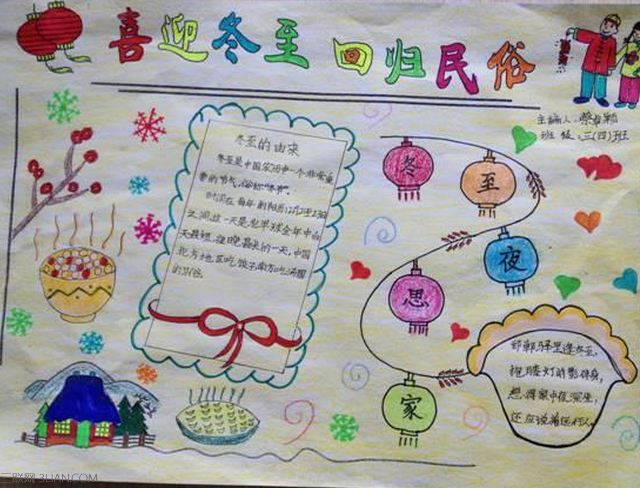 喜迎冬至 回归民俗
主编人:蔡 颖
班级:三(四)班
冬至的由来
冬至是中国农历中一个非常重
要的节气,俗称“冬节”。
时间在每年的阳历12月21至23日
之间,这一天是北半球全年中白
天最短、夜晚最长的一天,中国
北方地区吃饺子,南方吃汤圆
的习俗。
冬
至
夜
思
家
邯郸驿里逢冬至,
抱膝灯前影伴身,
想得家中夜深坐,
还应说着远行人。
三联网 3LIAN.COM